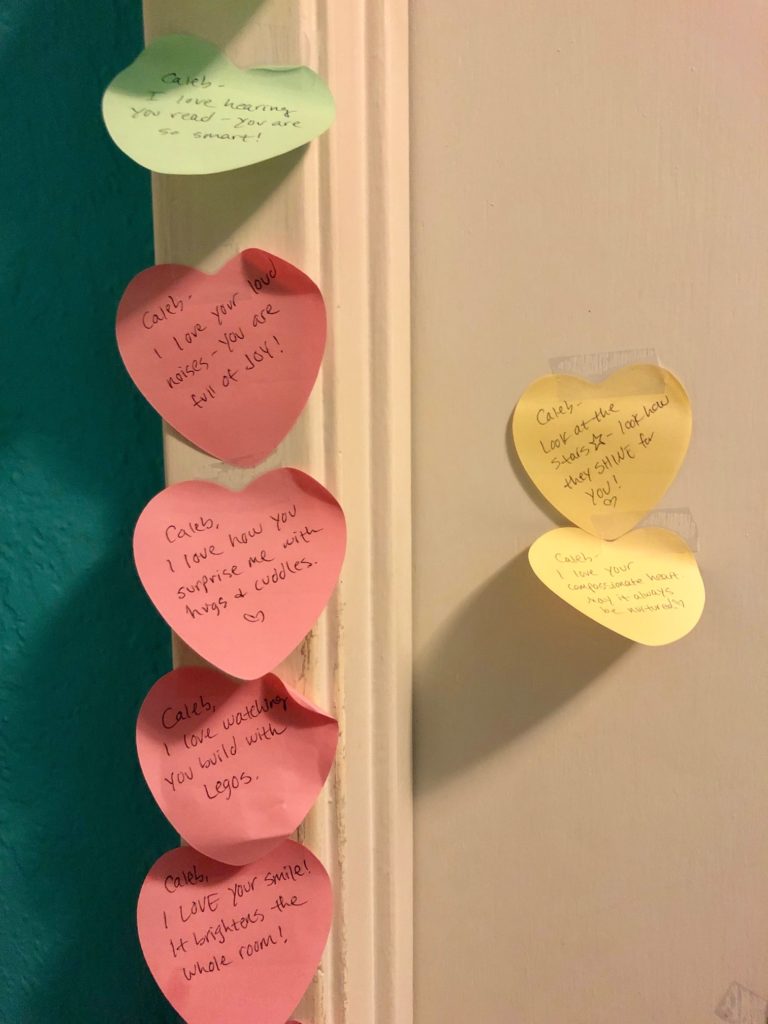 Caleb-
I love hearing
you read - you are
so smart!
Caleb-
I love your loud
noises - you are
full of JOY!
Caleb,
I love how you
surprise me with
hugs & cuddles.
♡
Caleb,
I love watching
you build with
Legos.
Caleb,
I LOVE your smile!
It brightens the
whole room!
Caleb-
Look at the
stars☆- look how
they SHINE for
YOU!
♡
Caleb-
I love your
compassionate heart.
May it always
be nurtured♡